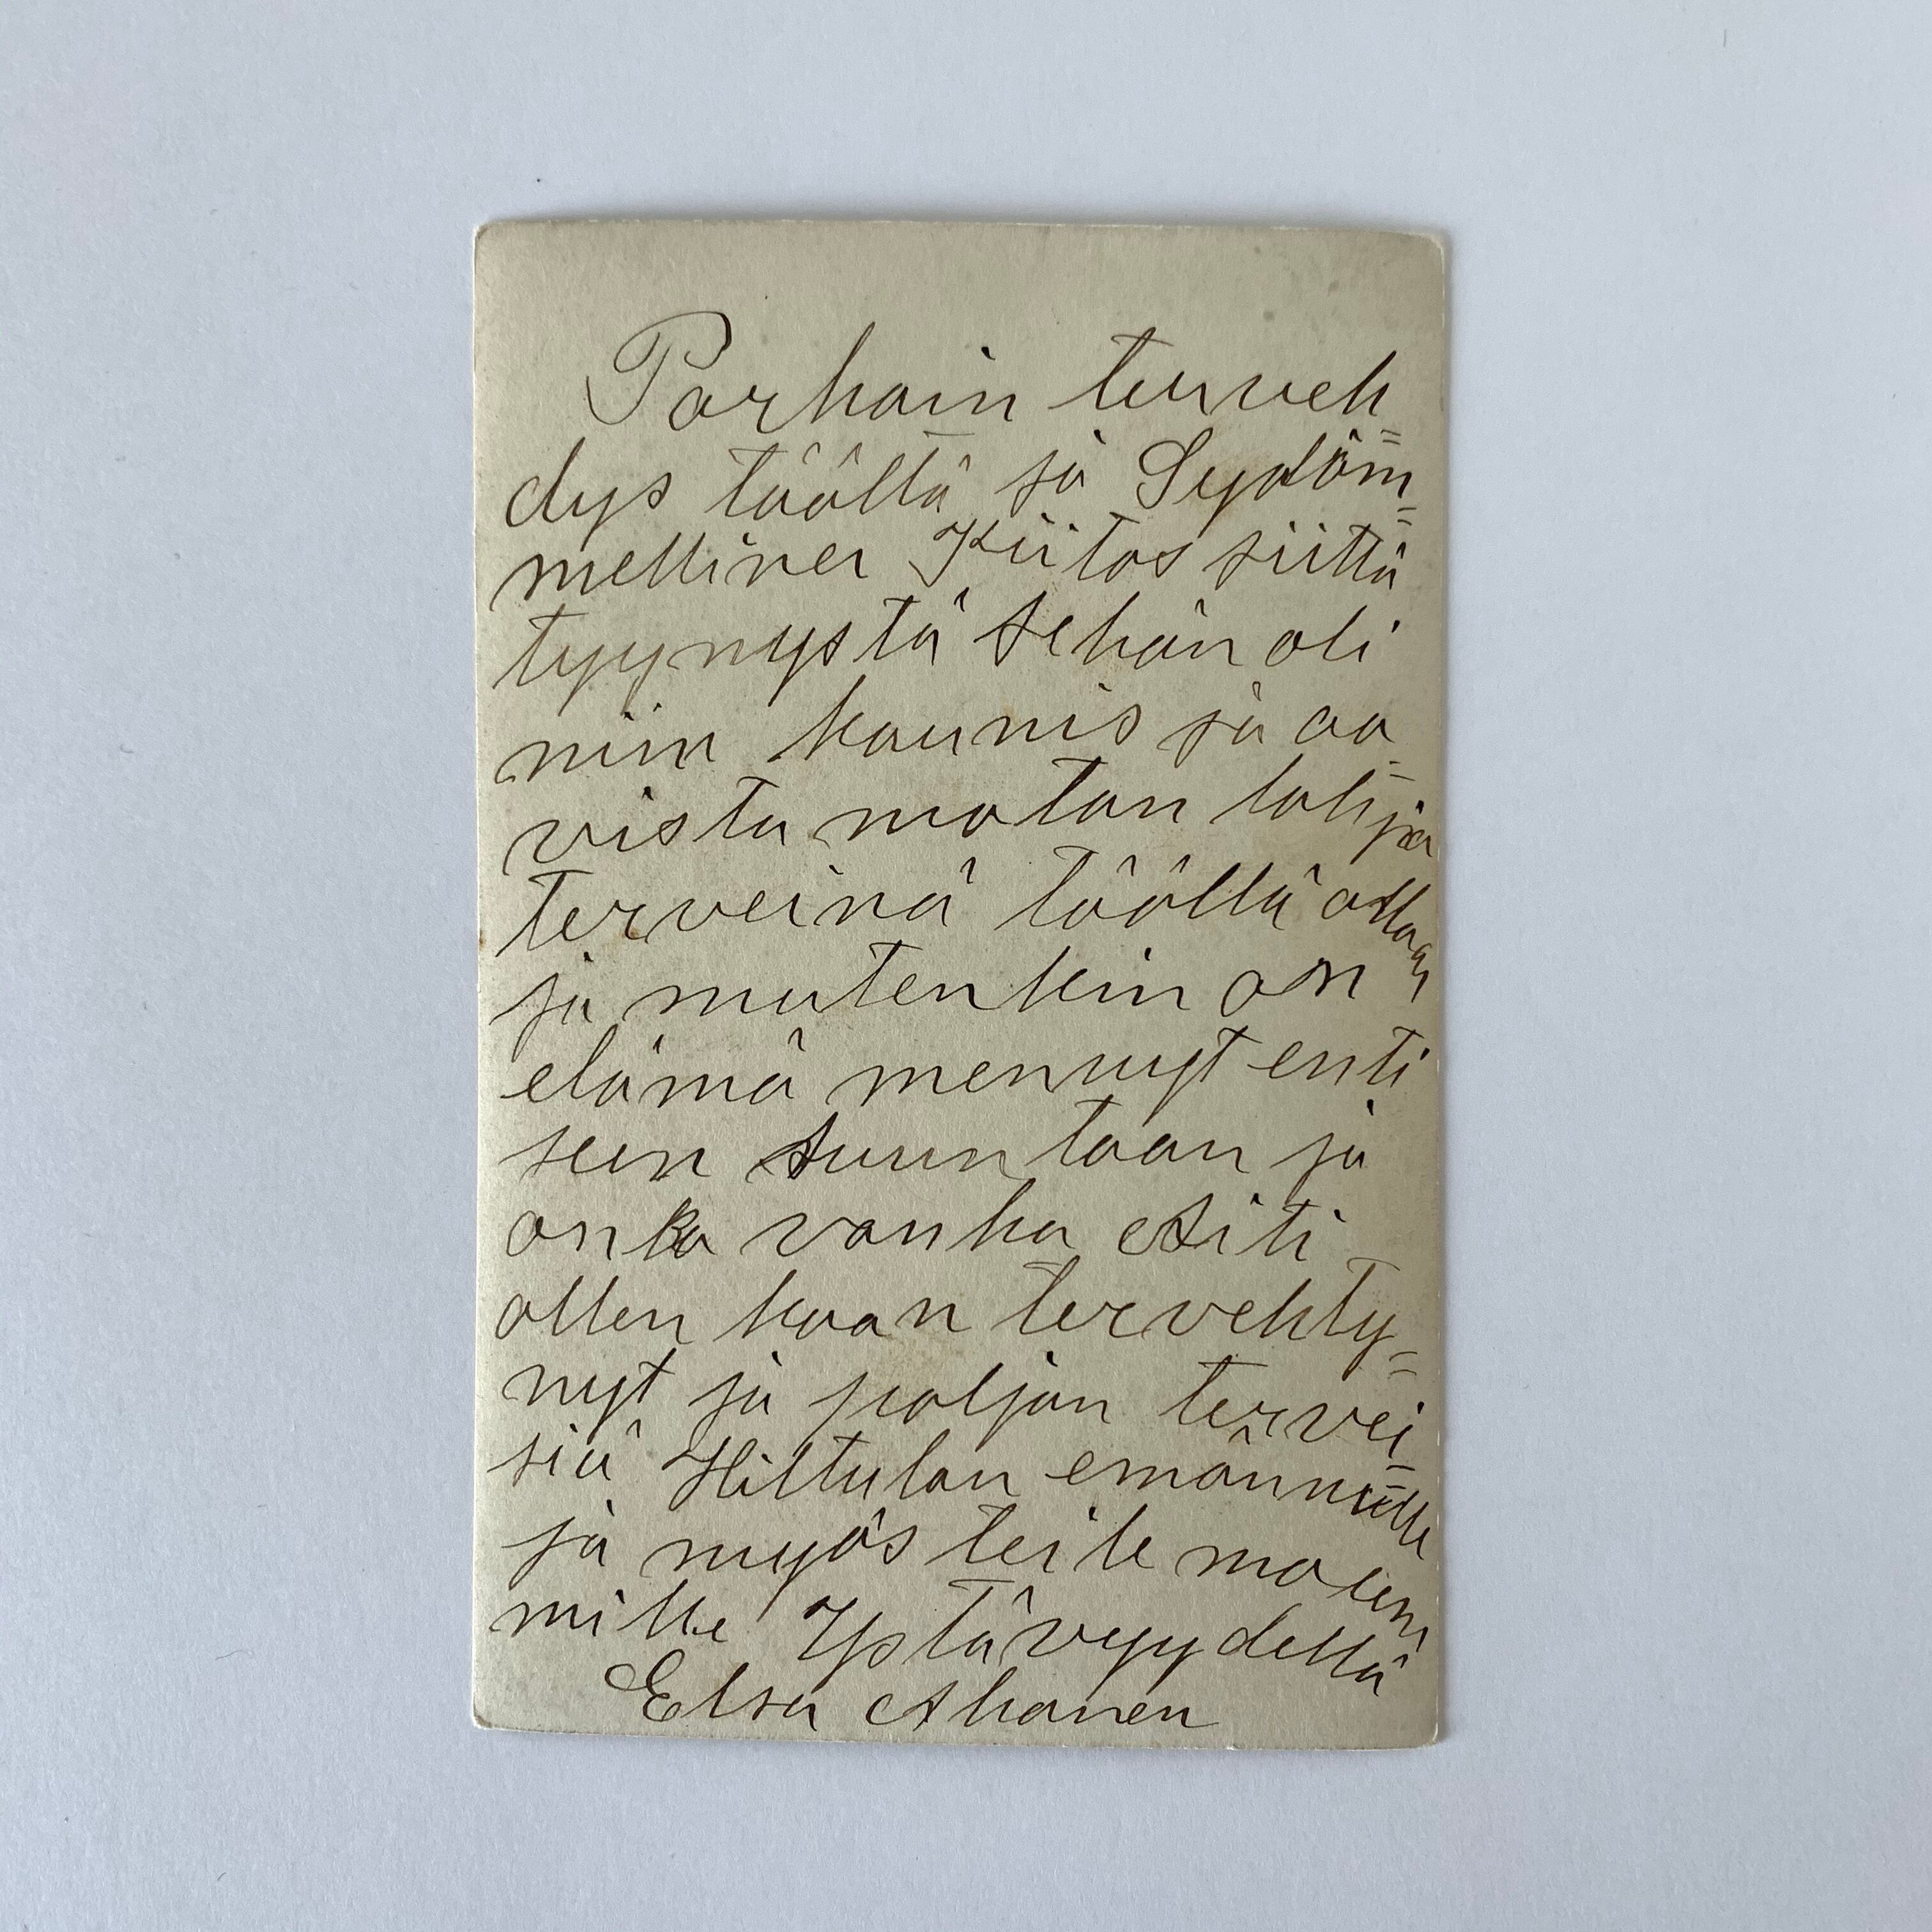 Parhain terveh=
dys täältä ja Sydäm=
mellinen Kiitos siittä
tyynystä sehän oli
niin kaunis ja aa=
vistamatan lahja
terveinä täällä ollaan
ja mutenkin on
elämä mennyt enti
seen suuntaan ja
onko vanha Äiti
ollenkaan tervehty=
nyt ja paljon tervei=
siä Hiltulan emännälle
ja myös teile molem
mille Ystävyydellä
Elsa Ahonen